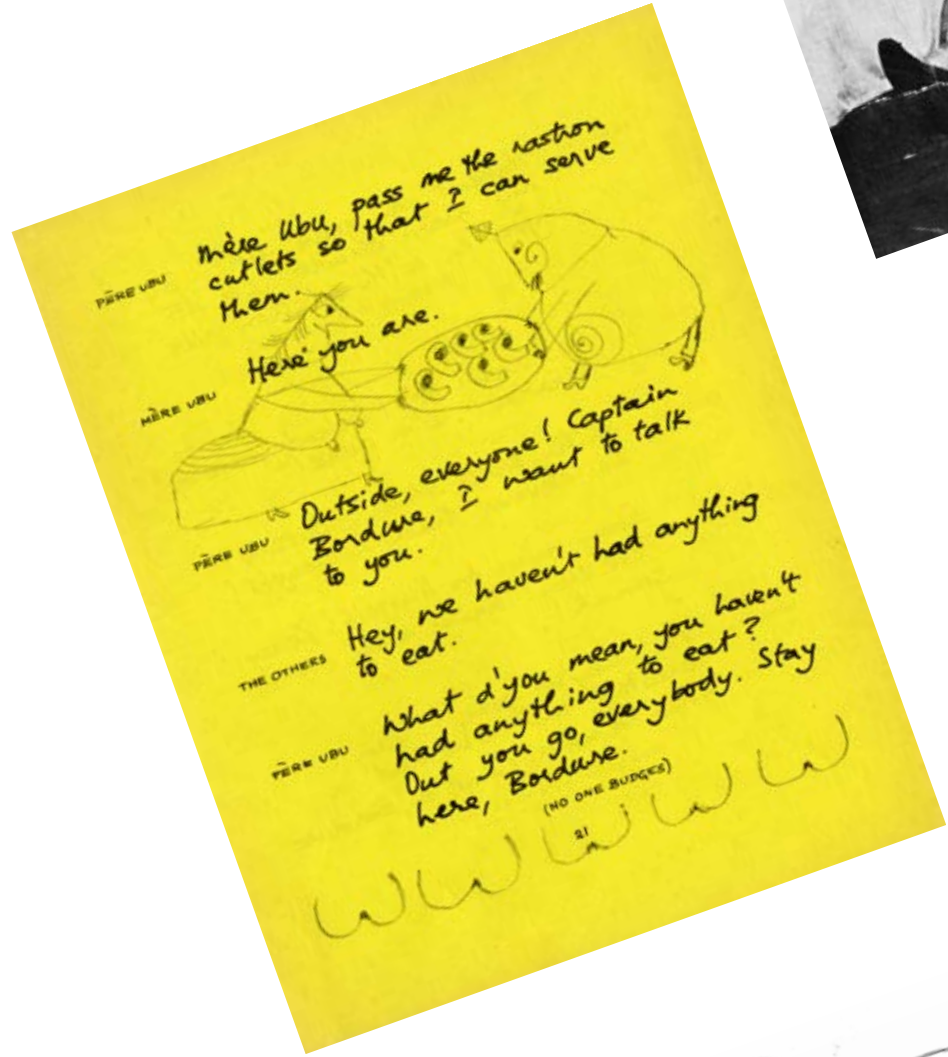 Mère Ubu, pass me the rastron
cutlets so that I can serve
PÈRE UBU them.
MÈRE UBU Here you are.
Outside, everyone! Captain
Bordure, I want to talk
PÈRE UBU to you.
Hey, we haven't had anything
THE OTHERS to eat.
What d'you mean, you haven't
had anything to eat?
PÈRE UBU Out you go, everybody. Stay
here, Bordure.
(NO ONE BUDGES)
21